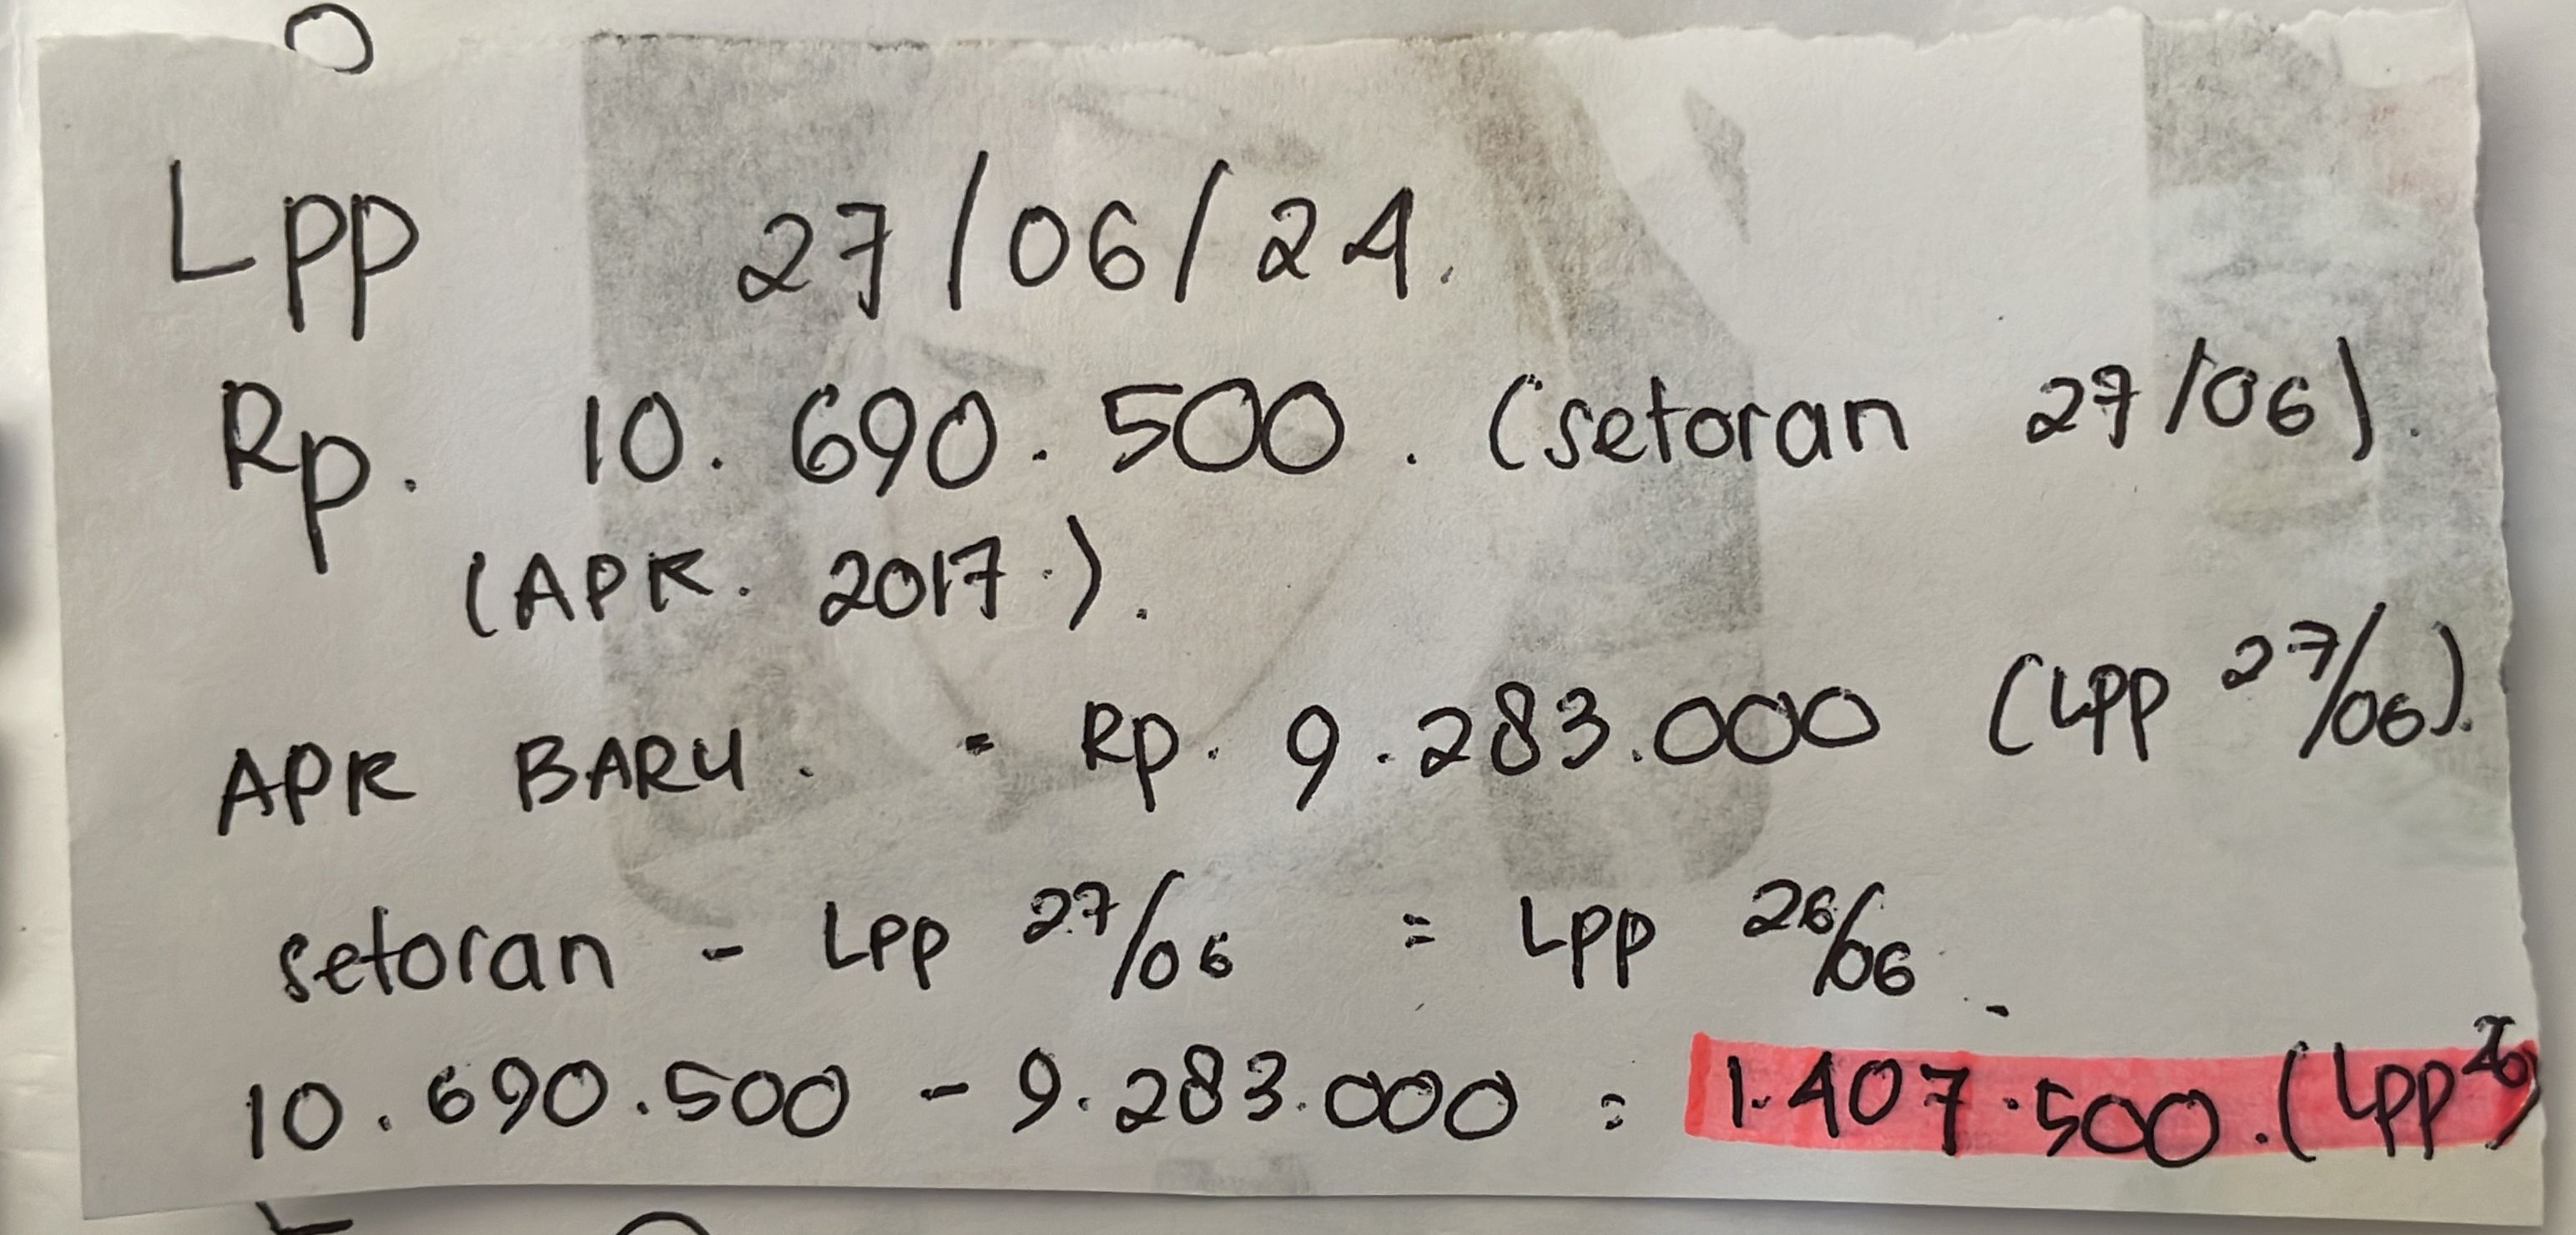 Lpp 27/06/24.
Rp. 10.690.500. (setoran 27/06).
(APK. 2017.).
APK BARU. = Rp. 9.283.000 (Lpp 27/06).
setoran - Lpp 27/06 = Lpp 26/06.
10.690.500 - 9.283.000 = 1.407.500.(Lpp 26)